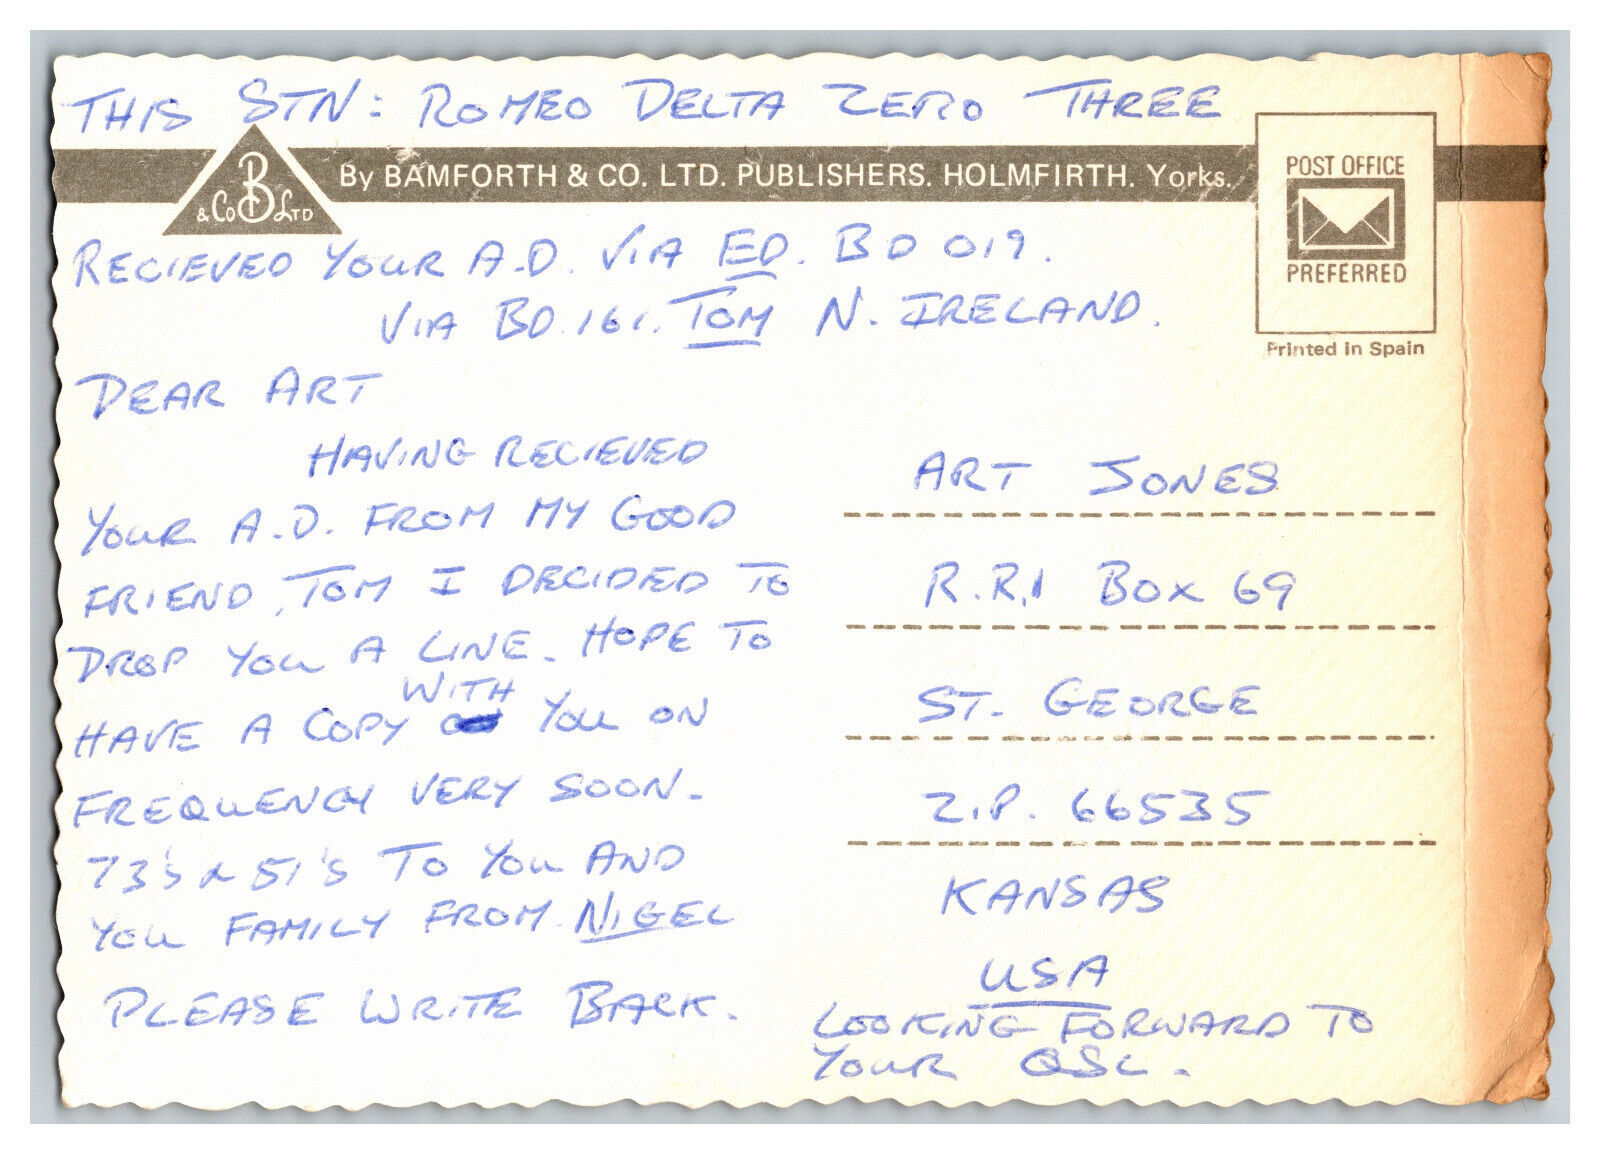 THIS STN: ROMEO DELTA ZERO THREE
B & Co LTD
By BAMFORTH & CO. LTD. PUBLISHERS. HOLMFIRTH. Yorks.
POST OFFICE
PREFERRED
Printed in Spain
RECIEVED YOUR A.D. VIA ED. BD 019.
VIA BD. 161. TOM N. IRELAND.
DEAR ART
HAVING RECIEVED
YOUR A.D. FROM MY GOOD
FRIEND, TOM I DECIDED TO
DROP YOU A LINE. HOPE TO
HAVE A COPY WITH YOU ON
FREQUENCY VERY SOON.
73's & 51's TO YOU AND
YOU FAMILY FROM NIGEL
PLEASE WRITE BACK.
ART JONES
R.R.1 BOX 69
ST. GEORGE
Z.I.P. 66535
KANSAS
USA
LOOKING FORWARD TO
YOUR QSL.